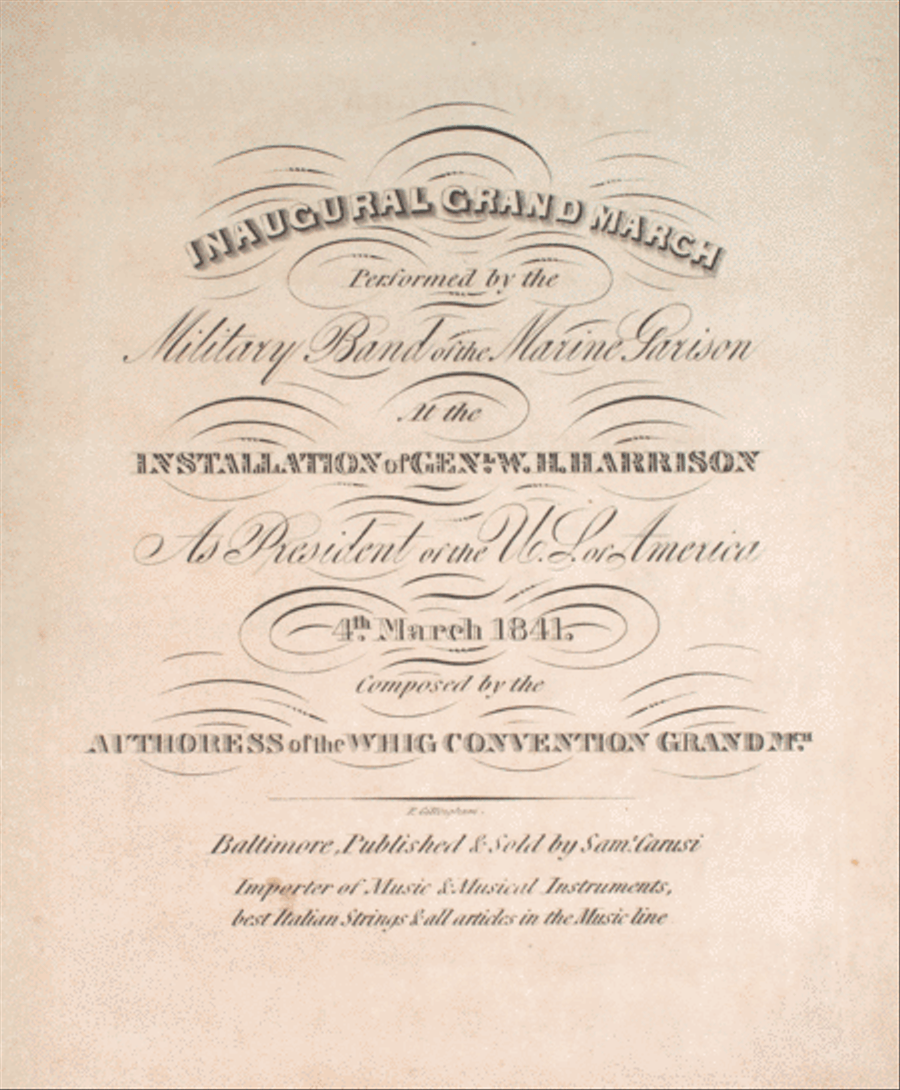 INAUGURAL GRAND MARCH
Performed by the
Military Band of the Marine Garison
At the
INSTALLATION of GENL. W. H. HARRISON
As President of the U. S. of America
4th. March 1841.
Composed by the
AUTHORESS of the WHIG CONVENTION GRAND MCH.
Baltimore, Published & Sold by Saml. Carusi
Importer of Music & Musical Instruments,
best Italian Strings & all articles in the Music line